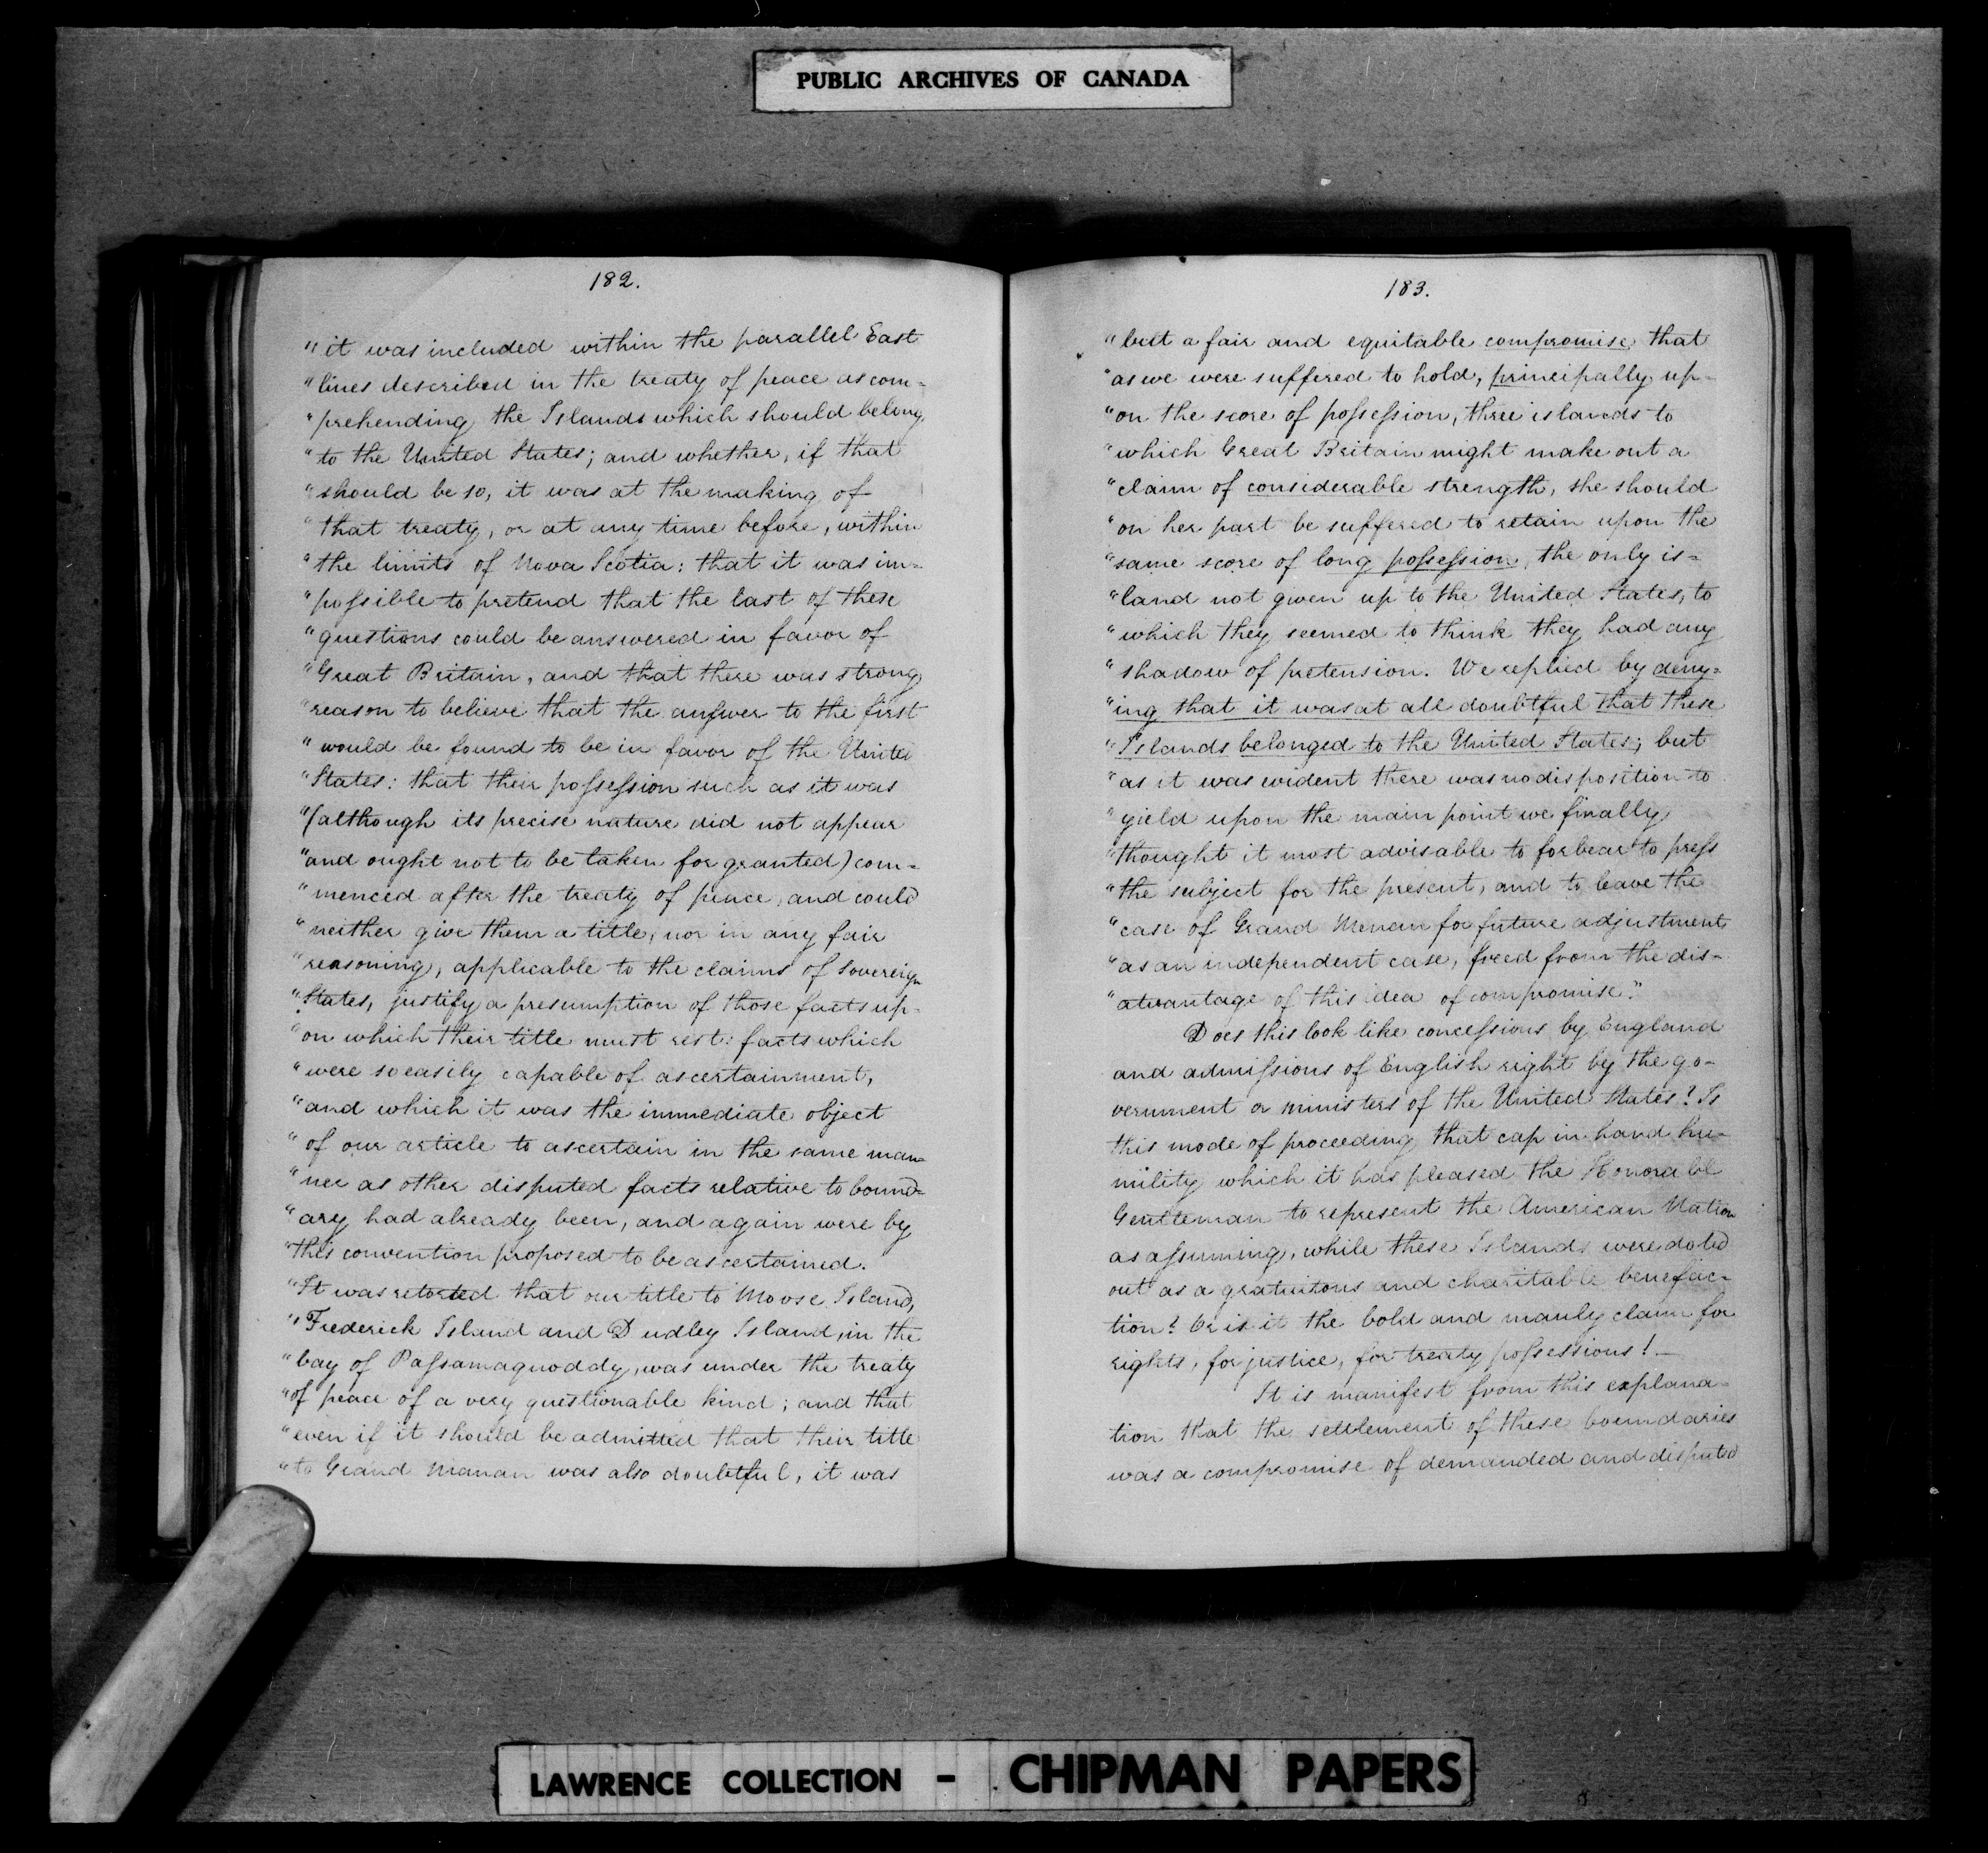 PUBLIC ARCHIVES OF CANADA
182.
" it was included within the parallel East
" lines described in the treaty of peace as com=
" prehending the Islands which should belong
" to the United States; and whether, if that
" should be so, it was at the making of
" that treaty, or at any time before, within
" the limits of Nova Scotia: that it was im=
" possible to pretend that the last of these
" questions could be answered in favor of
" Great Britain, and that there was strong
" reason to believe that the answer to the first
" would be found to be in favor of the United
" States: that their possession such as it was
" (although its precise nature did not appear
" and ought not to be taken for granted) com=
" menced after the treaty of peace, and could
" neither give them a title, nor in any fair
" reasoning, applicable to the claims of Sovereign
" States, justify a presumption of those facts up-
" on which their title must rest: facts which
" were so easily capable of ascertainment,
" and which it was the immediate object
" of our article to ascertain in the same man=
" ner as other disputed facts relative to bound=
" ary had already been, and again were by
" this convention proposed to be ascertained.
" It was retorted that our title to Moose Island,
" Frederick Island and Dudley Island, in the
" bay of Passamaquoddy, was under the treaty
" of peace of a very questionable kind; and that
" even if it should be admitted that their title
" to Grand Manan was also doubtful, it was
183.
" but a fair and equitable compromise that
" as we were suffered to hold, principally up-
" on the score of possession, three islands to
" which Great Britain might make out a
" claim of considerable strength, she should
" on her part be suffered to retain upon the
" same score of long possession, the only is=
" land not given up to the United States, to
" which they seemed to think they had any
" shadow of pretension. We replied by deny=
" ing that it was at all doubtful that these
" Islands belonged to the United States; but
" as it was evident there was no disposition to
" yield upon the main point we finally
" thought it most advisable to forbear to press
" the subject for the present, and to leave the
" case of Grand Menan for future adjustment
" as an independent case, freed from the dis-
" advantage of this idea of compromise."
Does this look like concessions by England
and admissions of English right by the go-
vernment or ministers of the United States? Is
this mode of proceeding that cap in hand hu-
mility which it has pleased the Honorable
Gentleman to represent the American Nation
as assuming, while these Islands were doled
out as a gratuitous and charitable benefac-
tion? Or is it the bold and manly claim for
rights, for justice, for treaty possessions! —
It is manifest from this explana-
tion that the settlement of these boundaries
was a compromise of demanded and disputed
LAWRENCE COLLECTION - CHIPMAN PAPERS